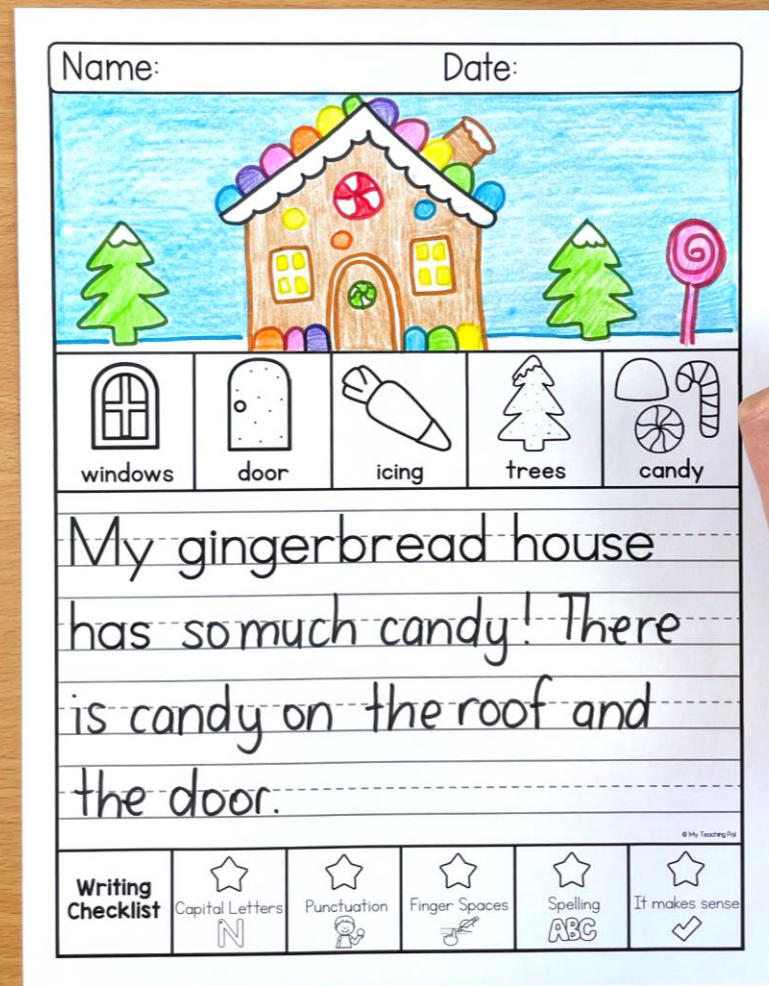 Name: Date:
windows door icing trees candy
My gingerbread house
has so much candy! There
is candy on the roof and
the door.
© My Teaching Pal
Writing Checklist
Capital Letters Punctuation Finger Spaces Spelling It makes sense
N ABC